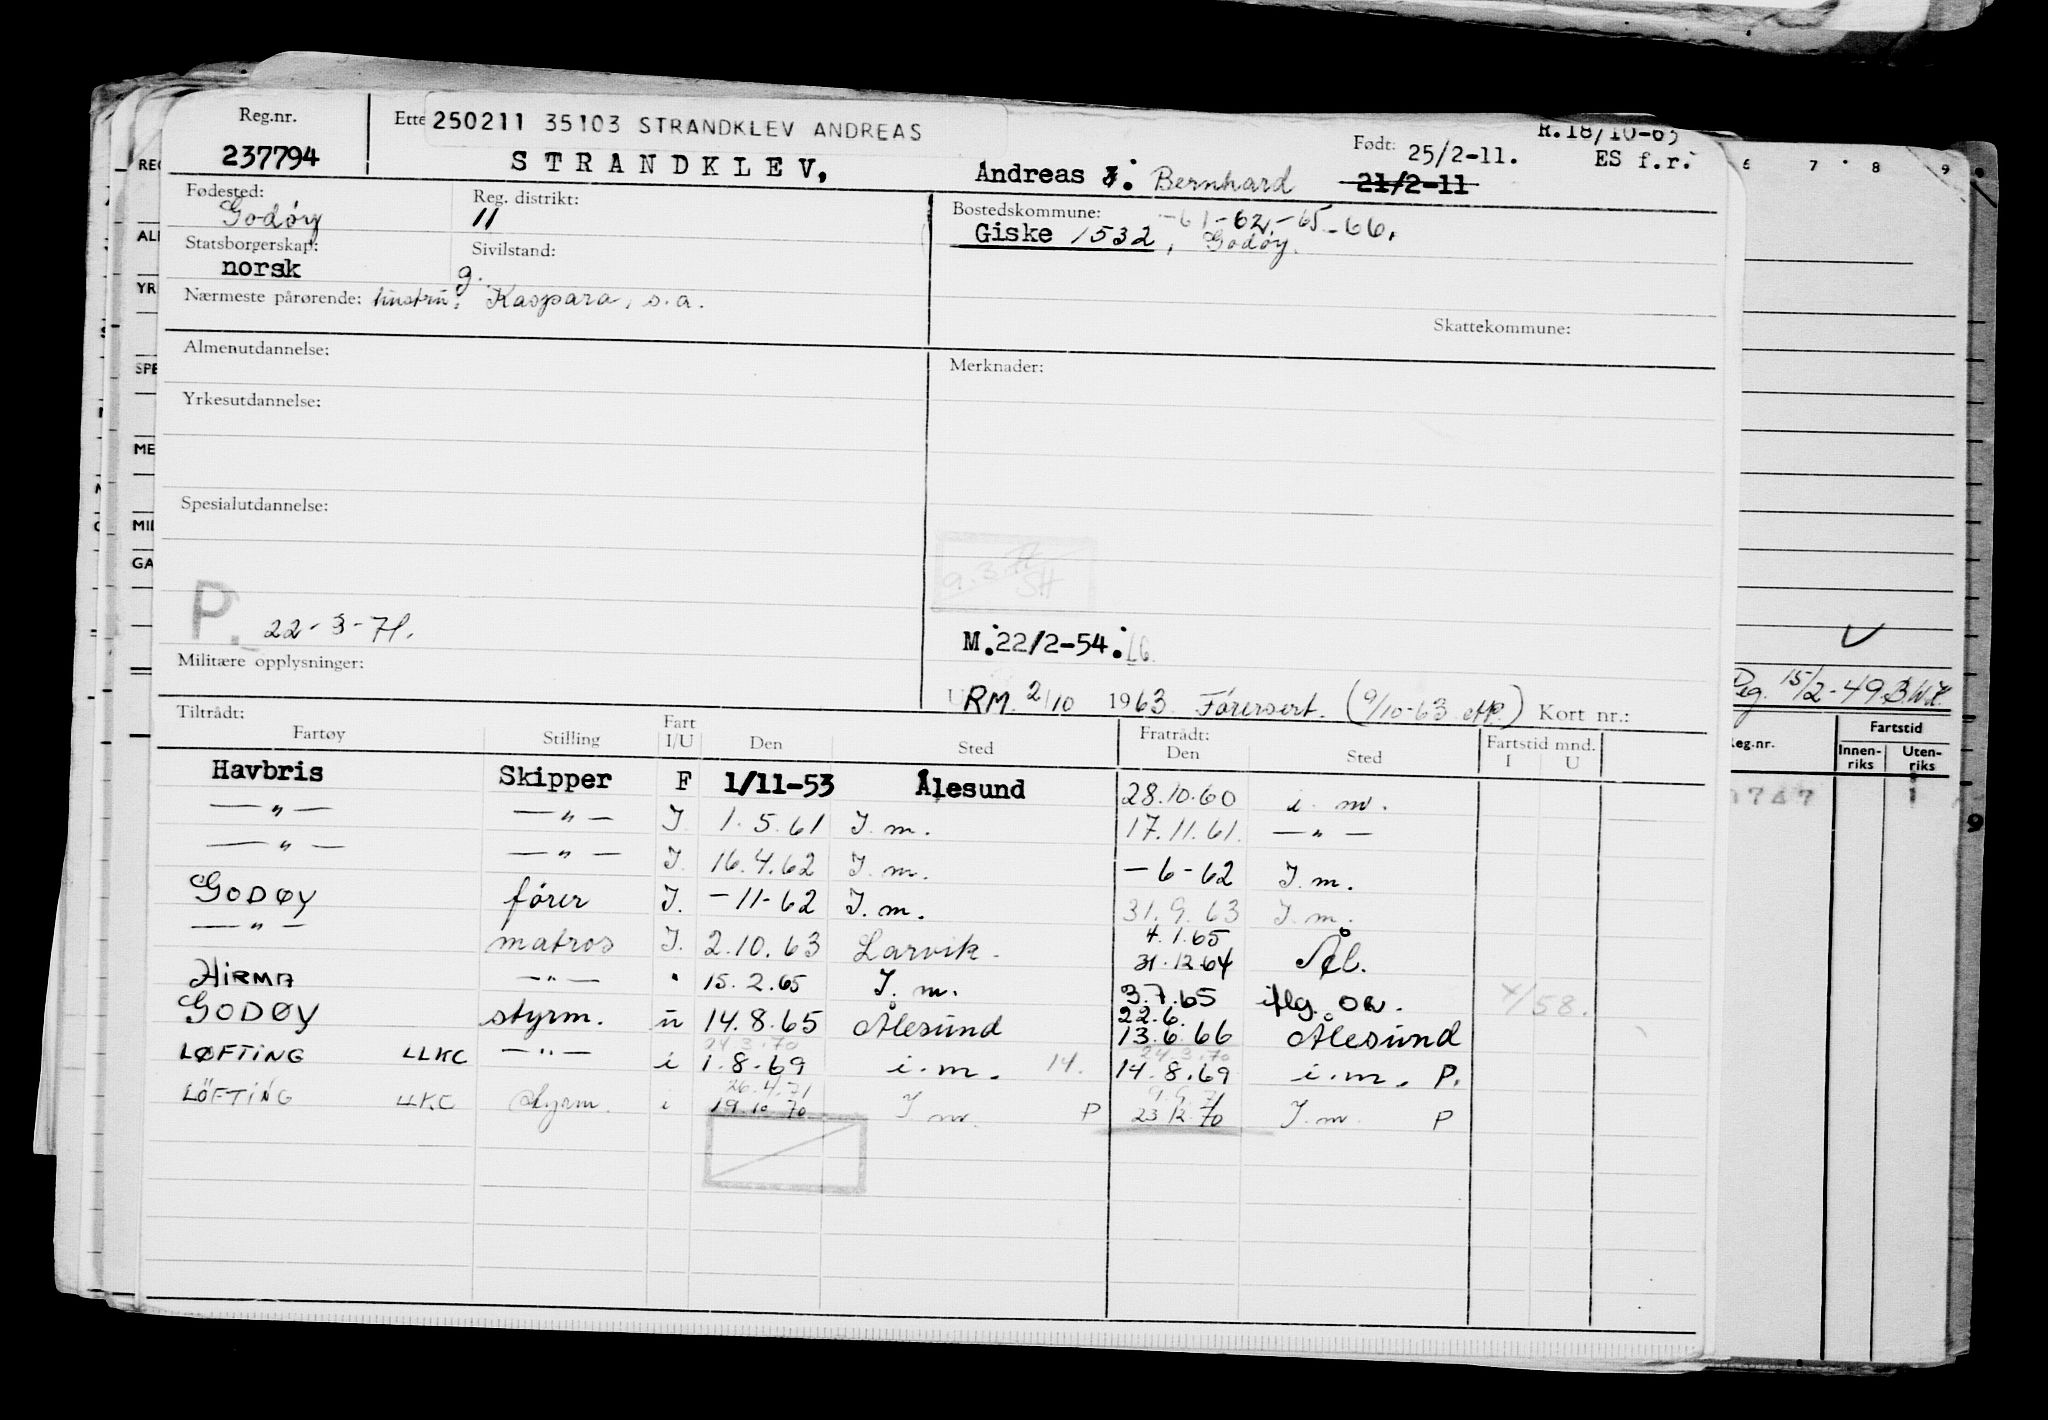 Reg.nr. Ette 250211 35103 STRANDKLEV ANDREAS Født: 25/2-11. R.18/10-63
237794 STRANDKLEV, Andreas : Bernhard 21/2-11 ES f.r.
Fødested: Reg. distrikt: Bostedskommune: -61-62,-65-66.
Godøy 11 Giske 1532, Godøy.
Statsborgerskap: Sivilstand:
norsk g.
Nærmeste pårørende: hustru, Kaspara, s.a.
Skattekommune:
Almenutdannelse: Merknader:
Yrkesutdannelse:
Spesialutdannelse:
9.3.71 SH
P. 22-3-71.
M.22/2-54.
Militære opplysninger:
RM. 2/10 1963 Førersert. (9/10-63 Kort nr.:
Tiltrådt: Fratrådt:
Fartøy Stilling Fart I/U Den Sted Den Sted Fartstid mnd. I U
Havbris Skipper F 1/11-53 Ålesund 28.10.60 i. m.
—"— —"— I. 1.5.61 I. m. 17.11.61. —"—
—"— —"— I. 16.4.62 I. m. -6-62 I. m.
GODØY fører I. -11-62 I. m. 31.9.63 I. m.
—"— matros I. 2.10.63 Larvik. 4.1.65 31.12.64 Ål.
HIRMA —"— " 15.2.65 I. m. 3.7.65 iflg. OR. 4/58.
GODØY styrm. u 14.8.65 Ålesund 22.6. 13.6.66 Ålesund
LØFTING LLKC —"— i 24.3.70 1.8.69 i.m. 14. 24.3.70 14.8.69 i.m. P.
LÖFTING LLKC styrm. i 26.4.71 19.10.70 I. m. P 9.9.71 23.12.70 I. m. P
REG
ALM
YR
SPE
ME
MIL
GA
6 7 8 9
Reg. 15/2-49
Reg.nr. Fartstid
Innen-riks Uten-riks
747 1
9